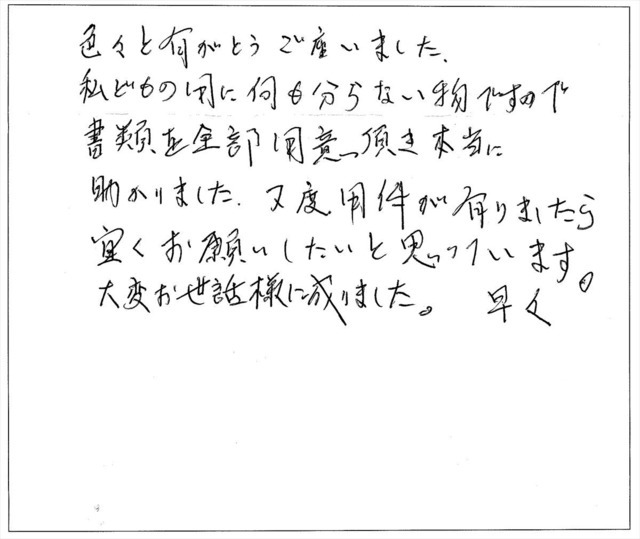 色々と有がとうご座いました、
私どもの用に何も分らない物ですので
書類を全部用意頂き本当に
助かりました。又度用件が有りましたら
宜くお願いしたいと思っています。
大変お世話様に成りました。 早々